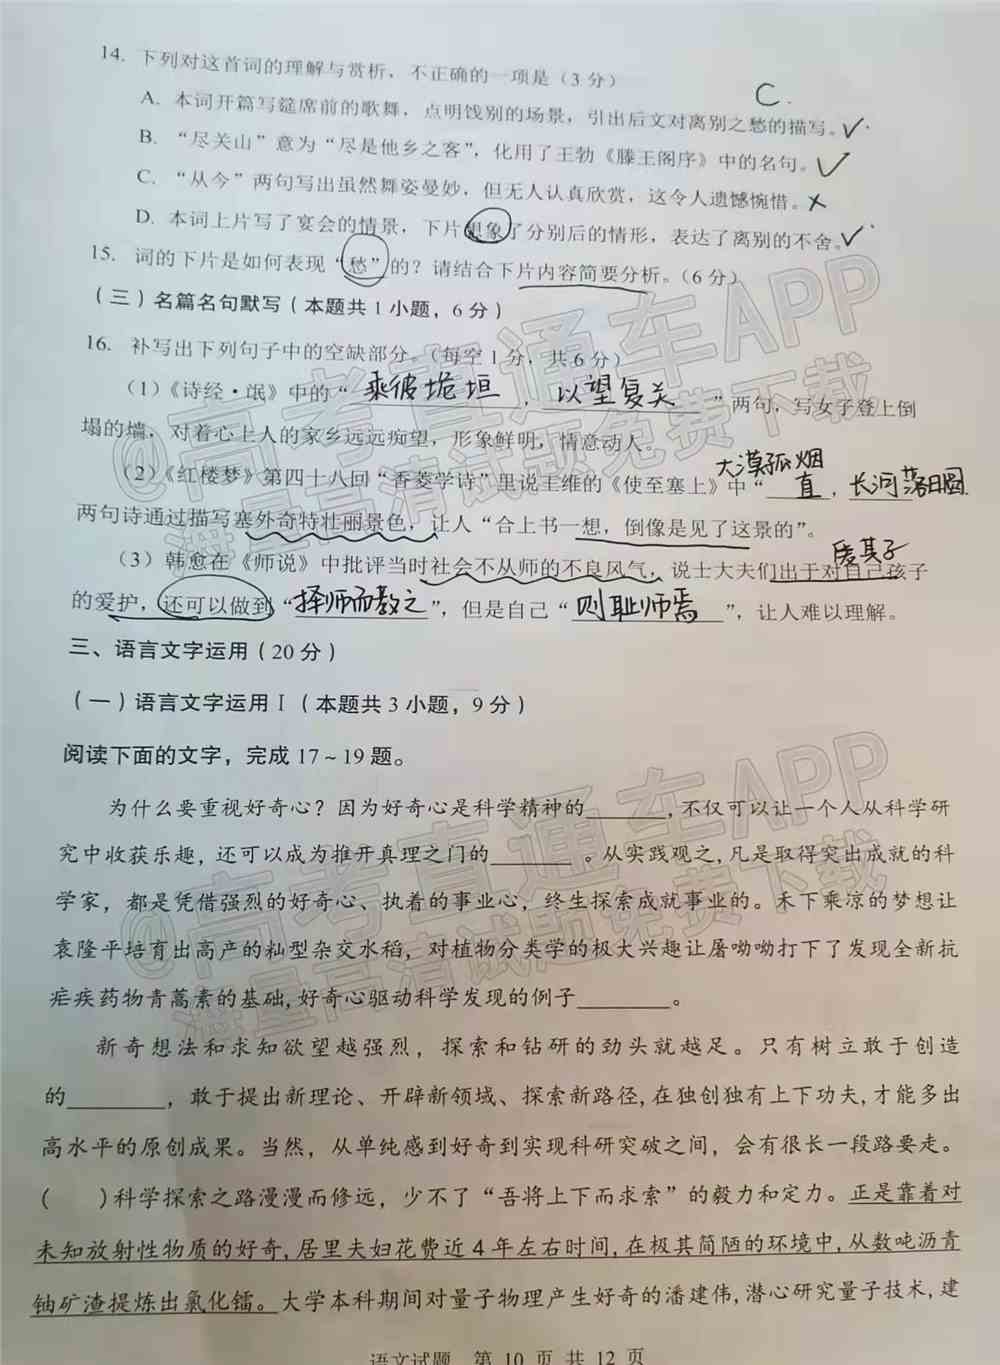 14. 下列对这首词的理解与赏析，不正确的一项是（3 分）
C.
A. 本词开篇写筵席前的歌舞，点明饯别的场景，引出后文对离别之愁的描写。✓
B. “尽关山”意为“尽是他乡之客”，化用了王勃《滕王阁序》中的名句。✓
C. “从今”两句写出虽然舞姿曼妙，但无人认真欣赏，这令人遗憾惋惜。×
D. 本词上片写了宴会的情景，下片想象了分别后的情形，表达了离别的不舍。✓
15. 词的下片是如何表现“愁”的？请结合下片内容简要分析。（6 分）
（三）名篇名句默写（本题共 1 小题，6 分）
16. 补写出下列句子中的空缺部分。（每空 1 分，共 6 分）
（1）《诗经·氓》中的“乘彼垝垣，以望复关”两句，写女子登上倒
塌的墙，对着心上人的家乡远远痴望，形象鲜明，情意动人。
（2）《红楼梦》第四十八回“香菱学诗”里说王维的《使至塞上》中“大漠孤烟直，长河落日圆
两句诗通过描写塞外奇特壮丽景色，让人“合上书一想，倒像是见了这景的”。
（3）韩愈在《师说》中批评当时社会不从师的不良风气，说士大夫们出于对自己孩子
爱其子
的爱护，还可以做到“择师而教之”，但是自己“则耻师焉”，让人难以理解。
三、语言文字运用（20 分）
（一）语言文字运用Ⅰ（本题共 3 小题，9 分）
阅读下面的文字，完成 17～19 题。
为什么要重视好奇心？因为好奇心是科学精神的______，不仅可以让一个人从科学研
究中收获乐趣，还可以成为推开真理之门的______。从实践观之，凡是取得突出成就的科
学家，都是凭借强烈的好奇心、执着的事业心，终生探索成就事业的。禾下乘凉的梦想让
袁隆平培育出高产的籼型杂交水稻，对植物分类学的极大兴趣让屠呦呦打下了发现全新抗
疟疾药物青蒿素的基础，好奇心驱动科学发现的例子______。
新奇想法和求知欲望越强烈，探索和钻研的劲头就越足。只有树立敢于创造
的______，敢于提出新理论、开辟新领域、探索新路径，在独创独有上下功夫，才能多出
高水平的原创成果。当然，从单纯感到好奇到实现科研突破之间，会有很长一段路要走。
（ ）科学探索之路漫漫而修远，少不了“吾将上下而求索”的毅力和定力。正是靠着对
未知放射性物质的好奇，居里夫妇花费近 4 年左右时间，在极其简陋的环境中，从数吨沥青
铀矿渣提炼出氯化镭。大学本科期间对量子物理产生好奇的潘建伟，潜心研究量子技术，建
语文试题 第 10 页 共 12 页
@高考直通车APP
海量高清试题免费下载
@高考直通车APP
海量高清试题免费下载